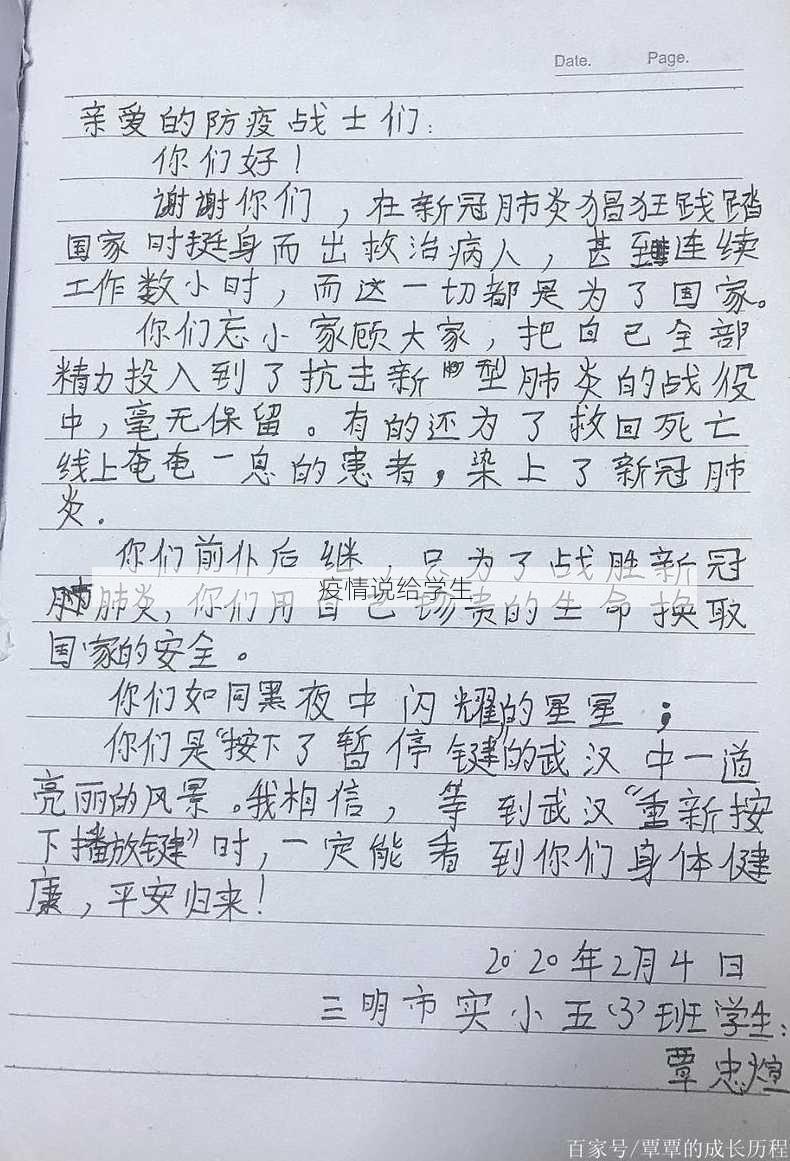 Date. Page.
亲爱的防疫战士们:
你们好!
谢谢你们,在新冠肺炎猖狂践踏
国家时挺身而出救治病人,甚至连续
工作数小时,而这一切都是为了国家。
你们忘小家顾大家,把自己全部
精力投入到了抗击新型肺炎的战役
中,毫无保留。有的还为了救回死亡
线上奄奄一息的患者,染上了新冠肺
炎.
你们前仆后继,只为了战胜新冠
疫情说给学生
肺炎,你们用自己珍贵的生命换取
国家的安全。
你们如同黑夜中闪耀的星星;
你们是“按下了暂停键”的武汉中一道
亮丽的风景。我相信,等到武汉“重新按
下播放键”时,一定能看到你们身体健
康,平安归来!
2020年2月4日
三明市实小五(3)班学生:
覃忠煊
百家号/覃覃的成长历程